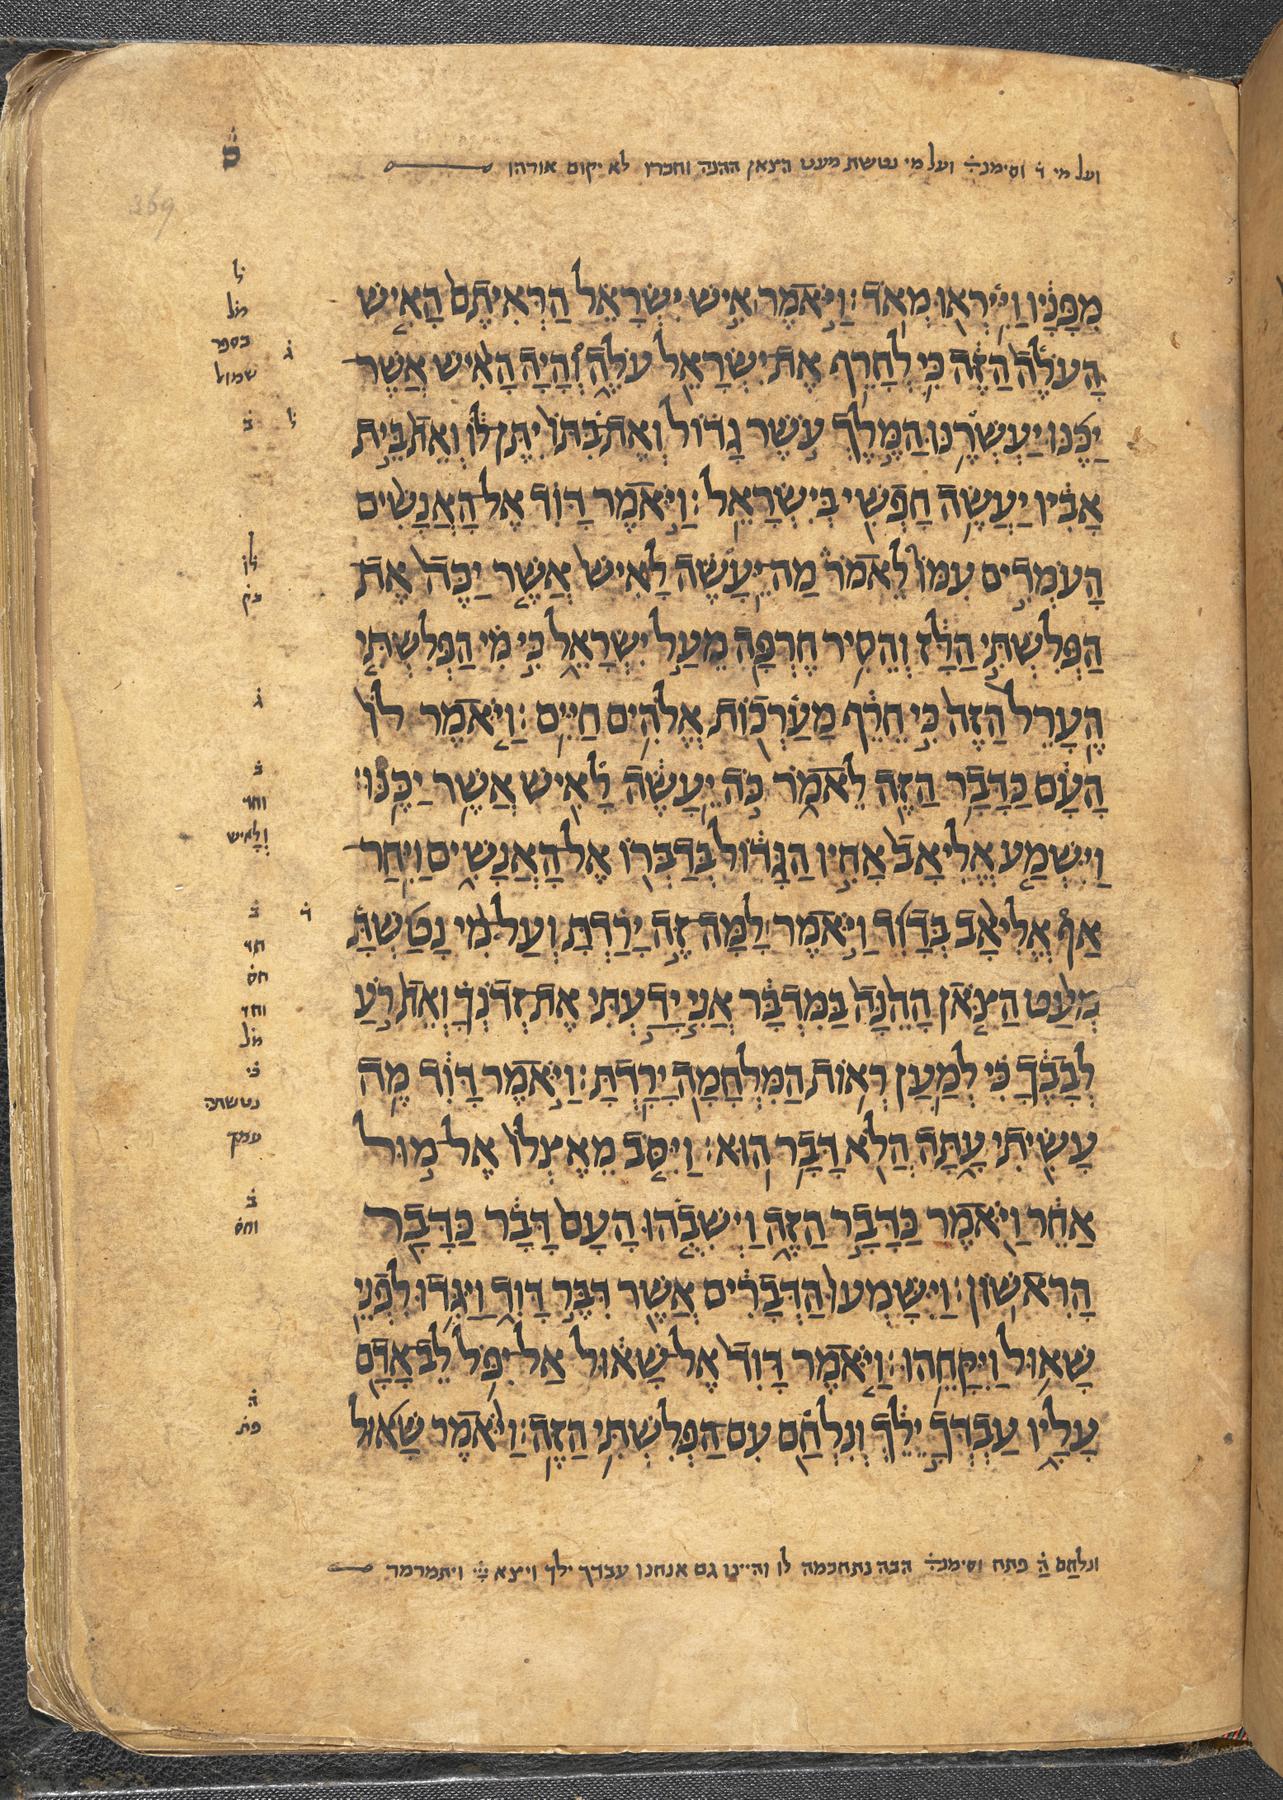 ס̈
ועל מי ד̇ וסימנ̇ ועל מי נטשת מעט הצאן ההנה וחברו לא יקום אורהו
מִפָּנָ֔יו וַיִּֽירְא֖וּ מְאֹֽד׃ וַיֹּ֣אמֶר אִ֣ישׁ יִשְׂרָאֵ֗ל הַרְּאִיתֶם֙ הָאִ֤ישׁ
הָעֹלֶה֙ הַזֶּ֔ה כִּ֛י לְחָרֵ֥ף אֶת־יִשְׂרָאֵ֖ל עֹלֶ֑ה וְֽהָיָ֡ה הָאִ֣ישׁ אֲשֶׁר
יַכֶּ֜נּוּ יַעְשְׁרֶ֥נּוּ הַמֶּ֣לֶךְ עֹ֣שֶׁר גָּד֗וֹל וְאֶת־בִּתּוֹ֙ יִתֶּן־ל֔וֹ וְאֵת֙ בֵּ֣ית
אָבִ֔יו יַעֲשֶׂ֥ה חָפְשִׁ֖י בְּיִשְׂרָאֵֽל׃ וַיֹּ֣אמֶר דָּוִ֗ד אֶֽל־הָאֲנָשִׁ֞ים
הָעֹמְדִ֣ים עִמּוֹ֮ לֵאמֹר֒ מַה־יֵּעָשֶׂ֗ה לָאִישׁ֙ אֲשֶׁ֤ר יַכֶּה֙ אֶת
הַפְּלִשְׁתִּ֣י הַלָּ֔ז וְהֵסִ֥יר חֶרְפָּ֖ה מֵעַ֣ל יִשְׂרָאֵ֑ל כִּ֣י מִ֗י הַפְּלִשְׁתִּ֤י
הֶֽעָרֵל֙ הַזֶּ֔ה כִּ֣י חֵרֵ֔ף מַעַרְכ֖וֹת אֱלֹהִ֥ים חַיִּֽים׃ וַיֹּ֤אמֶר לוֹ֙
הָעָ֔ם כַּדָּבָ֥ר הַזֶּ֖ה לֵאמֹ֑ר כֹּ֣ה יֵעָשֶׂ֔ה לָאִ֖ישׁ אֲשֶׁ֥ר יַכֶּֽנּוּ׃
וַיִּשְׁמַ֤ע אֱלִיאָב֙ אָחִ֣יו הַגָּד֔וֹל בְּדַבְּר֖וֹ אֶל־הָאֲנָשִׁ֑ים וַיִּֽחַר־
אַף֩ אֱלִיאָ֨ב בְּדָוִ֜ד וַיֹּ֣אמֶר לָמָּה־זֶּ֣ה יָרַ֗דְתָּ וְעַל־מִ֨י נָטַשְׁתָּ֜
מְעַ֨ט הַצֹּ֤אן הָהֵ֙נָּה֙ בַּמִּדְבָּ֔ר אֲנִ֧י יָדַ֣עְתִּי אֶת־זְדֹנְךָ֗ וְאֵת֙ רֹ֣עַ
לְבָבֶ֔ךָ כִּ֗י לְמַ֛עַן רְא֥וֹת הַמִּלְחָמָ֖ה יָרָֽדְתָּ׃ וַיֹּ֣אמֶר דָּוִ֔ד מֶ֥ה
עָשִׂ֖יתִי עָ֑תָּה הֲל֖וֹא דָּבָ֥ר הֽוּא׃ וַיִּסֹּ֤ב מֵֽאֶצְלוֹ֙ אֶל־מ֣וּל
אַחֵ֔ר וַיֹּ֖אמֶר כַּדָּבָ֣ר הַזֶּ֑ה וַיְשִׁבֻ֤הוּ הָעָם֙ דָּבָ֔ר כַּדָּבָ֖ר
הָרִאשֽׁוֹן׃ וַיִּשָּֽׁמְעוּ֙ הַדְּבָרִ֔ים אֲשֶׁ֖ר דִּבֶּ֣ר דָּוִ֑ד וַיַּגִּ֥דוּ לִפְנֵֽי
שָׁא֖וּל וַיִּקָּחֵֽהוּ׃ וַיֹּ֤אמֶר דָּוִד֙ אֶל־שָׁא֔וּל אַל־יִפֹּ֥ל לֵב־אָדָ֖ם
עָלָ֑יו עַבְדְּךָ֣ יֵלֵ֔ךְ וְנִלְחַ֖ם עִם־הַפְּלִשְׁתִּ֥י הַזֶּֽה׃ וַיֹּ֨אמֶר שָׁא֜וּל
ל̇
מ̇ל
בספר
ג̇
שמול
ל̇ ב̇
ג̇
ב̇
וחד
וְלָאיש
ד̇ ב̇
חד
חס̇
וחד
מ̇ל
כי
נטשתה
עמך
ב̇
וחס̇
ה̇
פת̇
ונלחַם הַ̇ פתח וסימנ̇ הבה נתחכמה לו והיינו גם אנחנו עבדך ילך ויצא ויתמרמר